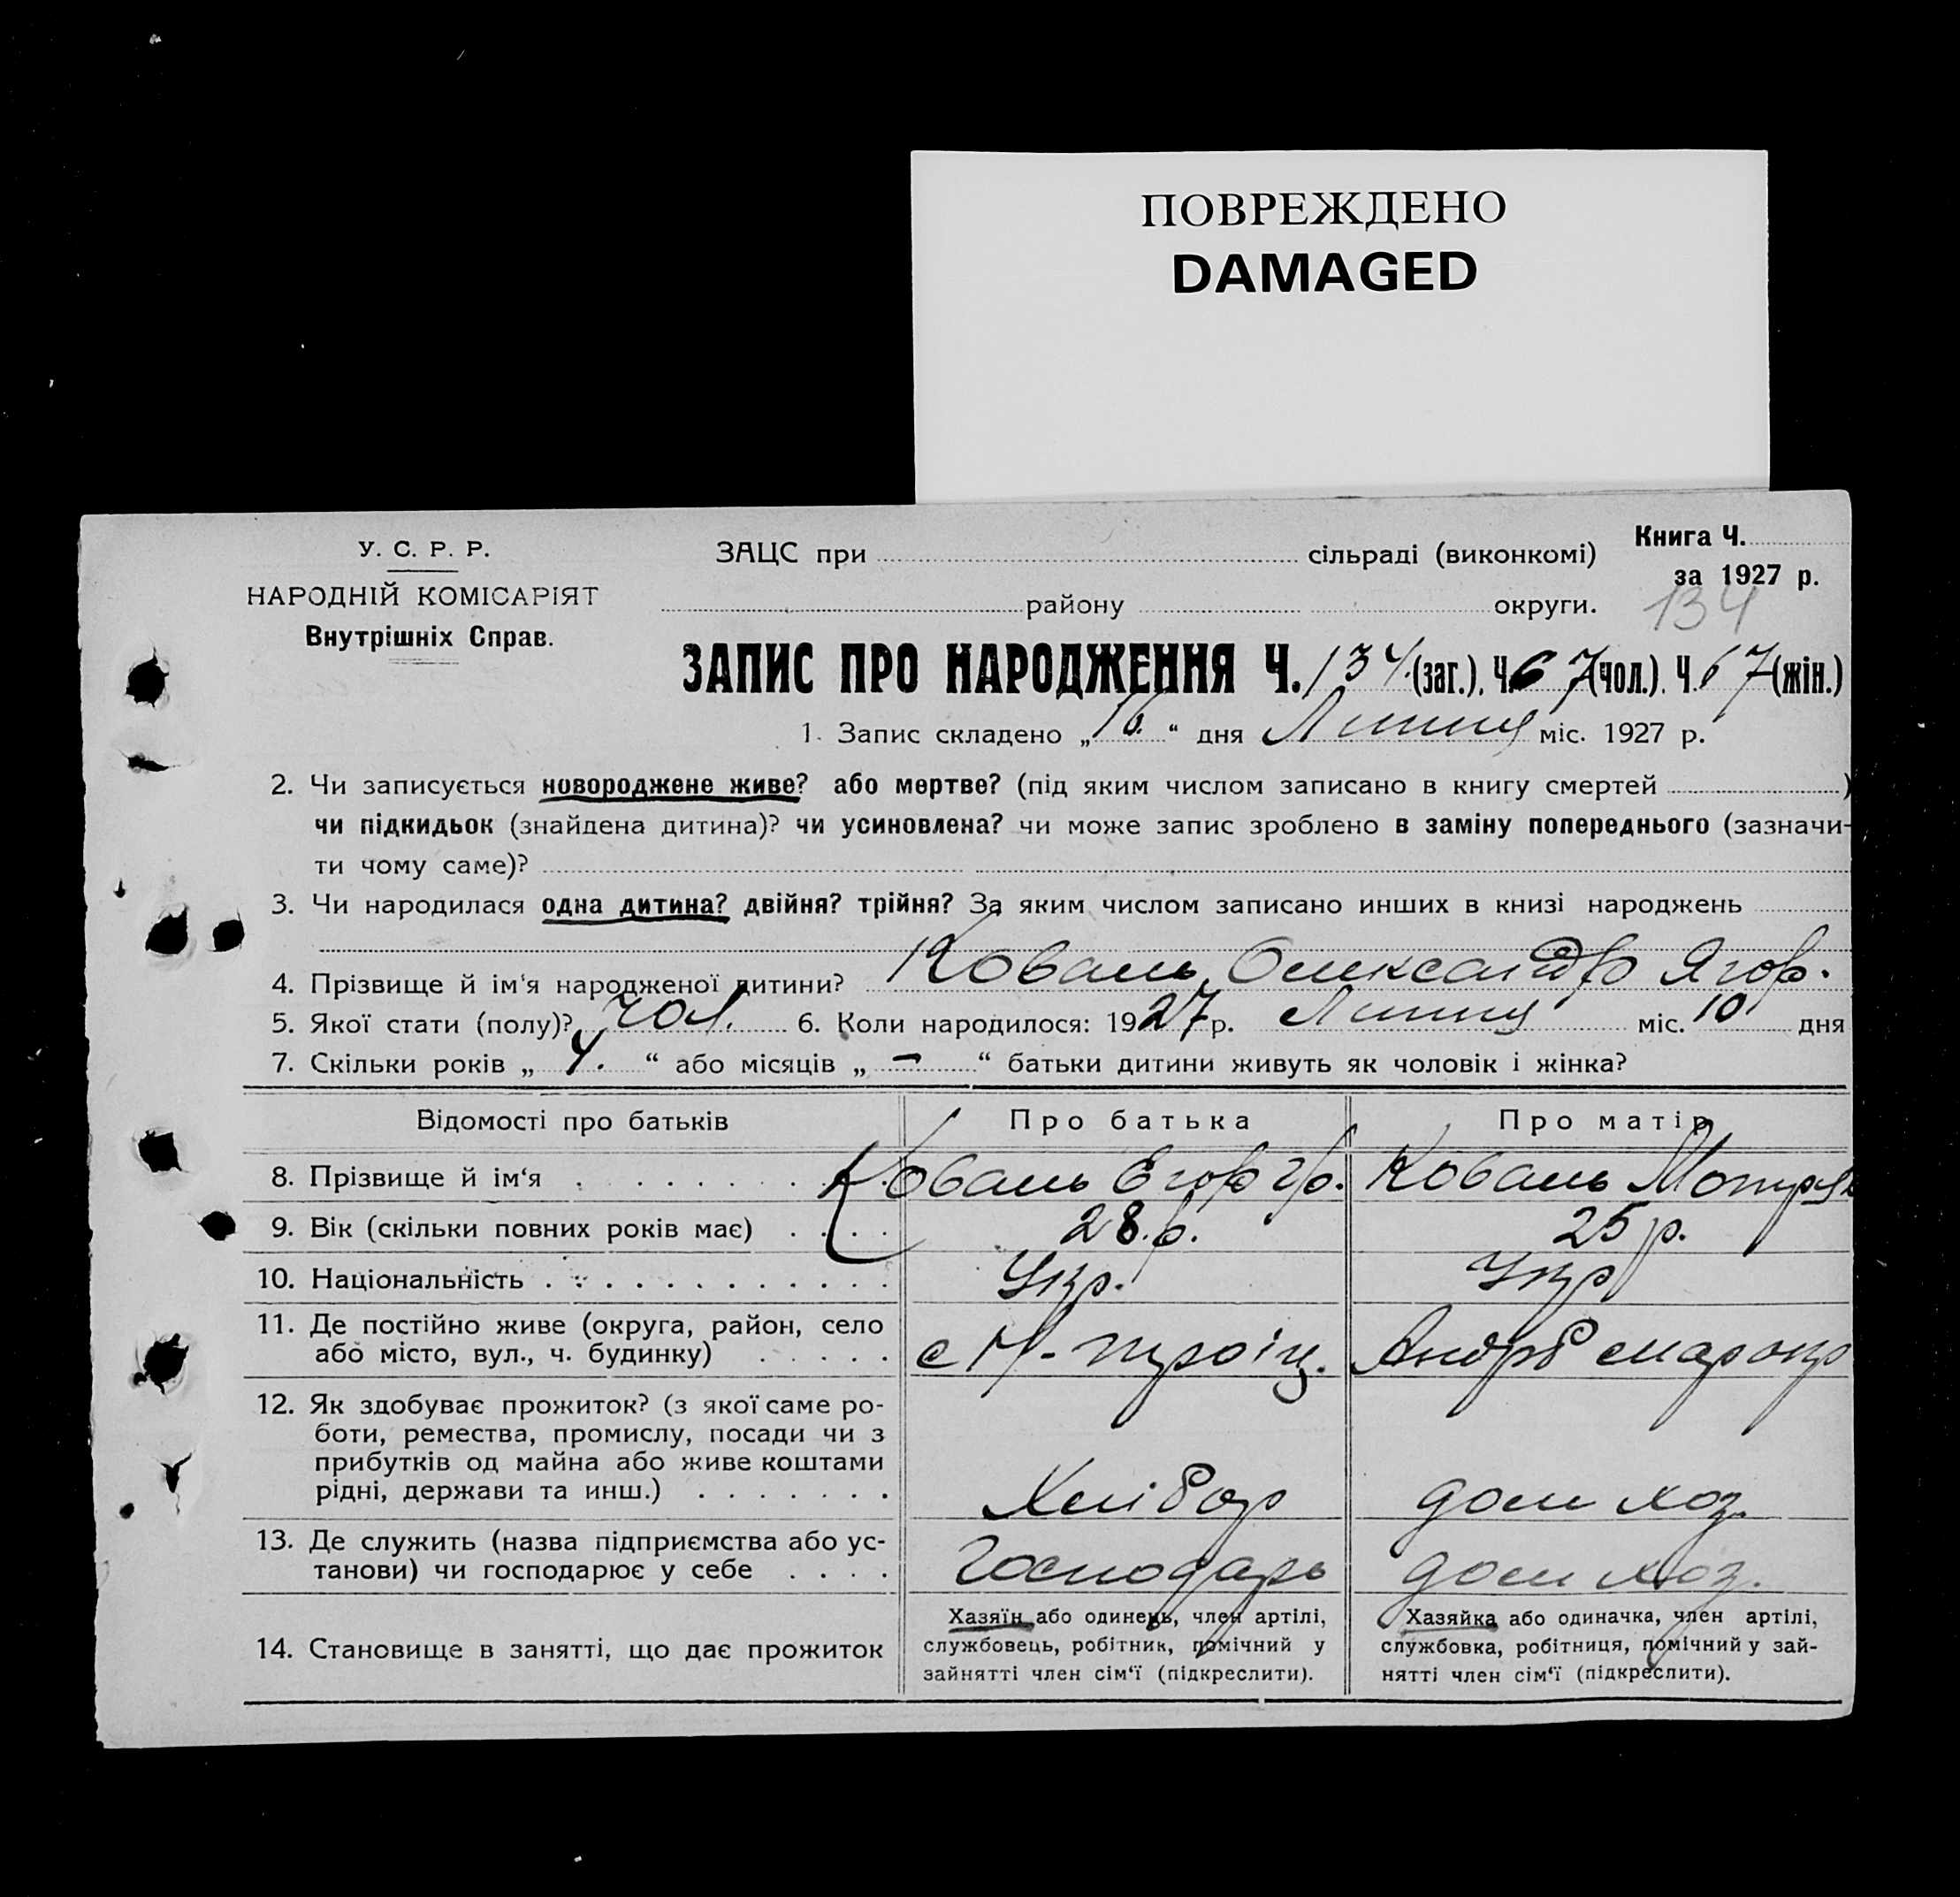 ПОВРЕЖДЕНО
DAMAGED
У. С. Р. Р.
НАРОДНІЙ КОМІСАРІЯТ
Внутрішніх Справ.
ЗАЦС при сільраді (виконкомі)
району округи.
Книга Ч.
за 1927 р.
134
ЗАПИС ПРО НАРОДЖЕННЯ Ч. 134. (заг.). Ч. 67 (чол.). Ч. 67 (жін.)
1. Запис складено „16.“ дня Липня міс. 1927 р.
2. Чи записується новороджене живе? або мертве? (під яким числом записано в книгу смертей )
чи підкидьок (знайдена дитина)? чи усиновлена? чи може запис зроблено в заміну попереднього (зазначи-
ти чому саме)?
3. Чи народилася одна дитина? двійня? трійня? За яким числом записано инших в книзі народжень
4. Прізвище й ім‘я народженої дитини? Коваль Олександр Ягор.
5. Якої стати (полу)? чол. 6. Коли народилося: 1927 р. Липня міс. 10 дня
7. Скільки років „ 4. “ або місяців „ — “ батьки дитини живуть як чоловік і жінка?
Відомості про батьків Про батька Про матір
8. Прізвище й ім‘я Коваль Егор Гр. Коваль Мотря
9. Вік (скільки повних років має) 28.р. 25 р.
10. Національність Укр. Укр
11. Де постійно живе (округа, район, село
або місто, вул., ч. будинку) с Н-троіц.
12. Як здобуває прожиток? (з якої саме ро-
боти, ремества, промислу, посади чи з
прибутків од майна або живе коштами
рідні, держави та инш.) Хлібор дом хоз.
13. Де служить (назва підприємства або ус-
танови) чи господарює у себе Господарь дом хоз.
14. Становище в занятті, що дає прожиток
Хазяїн або одинець, член артілі,
службовець, робітник, помічний у
зайнятті член сім‘ї (підкреслити).
Хазяйка або одиначка, член артілі,
службовка, робітниця, помічний у зай-
нятті член сім‘ї (підкреслити).